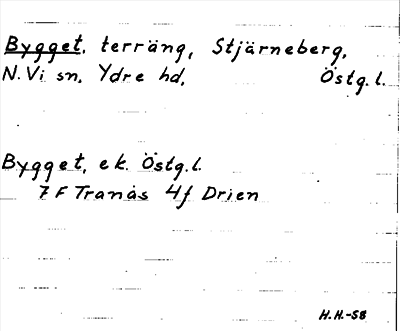 Bygget, terräng, Stjärneberg,
N. Vi sn, Ydre hd, Östg. l.
Bygget, ek. Östg. l.
7 F Tranås 4f Drien
H.H.-58